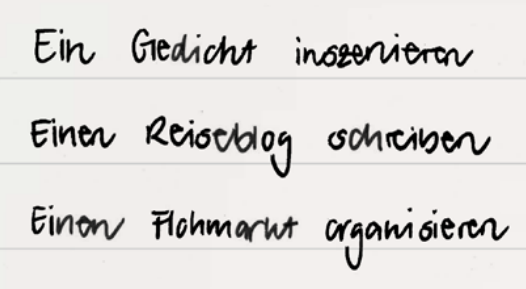 Ein Gedicht inszenieren
Einen Reiseblog schreiben
Einen Flohmarkt organisieren